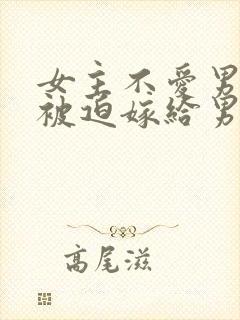 女主不愛男
被迫嫁給男
高尾滋